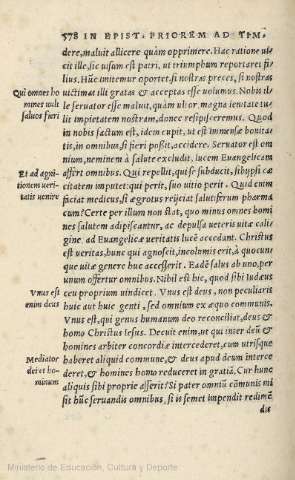 578 IN EPIST. PRIOREM AD TIM.
dere, maluit allicere quàm opprimere. Hac ratione ul-
cit ille, sic uisum est patri, ut triumphum reportaret fi-
lius. Hũc imitemur oportet, si nostras preces, si nostras
Qui omnes ho
mines uult
saluos fieri
uictimas illi gratas & acceptas esse uolumus. Nobis il-
le seruator esse maluit, quàm ultor, magna lenitate tu-
lit impietatem nostram, donec resipisceremus. Quod
in nobis factum est, idem cupit, ut est immensæ bonita-
tis, in omnibus, si fieri possit, accidere. Seruator est om
nium, neminem à salute excludit, lucem Euangelicam
Et ad agni-
tionem ueri-
tatis uenire
affert omnibus. Qui repellit, qui se subducit, is suæ cæ
citatem imputet: qui perit, suo uitio perit. Quid cum
faciat medicus, si ægrotus reijciat salutiferum pharma
cum? Certe per illum non stat, quo minus omnes homi
nes salutem adipiscantur, ac depulsa ueteris uitæ cali-
gine, ad Euangelicæ ueritatis lucē accedant. Christus
est ueritas, hunc qui agnoscit, incolumis erit, à quocun
que uitæ genere huc accesserit. Eadē salus ab uno, per
unum offertur omnibus. Nihil est hic, quod sibi Iudæus
Unus est
enim deus
ceu proprium uindicet. Vnus est deus, non peculiaris
huic aut huic genti, sed omnium ex æquo communis.
Vnus est, qui genus humanum deo reconciliat, deus &
homo Christus Iesus. Decuit enim, ut qui inter deũ &
homines arbiter concordiæ intercederet, cum utrisque
Mediator
dei et ho-
minum
haberet aliquid commune, & deus apud deum interce
deret, & homines homo reduceret in gratiã. Cur hunc
aliquis sibi proprie asserit? Si pater omniũ cõmunis mi
sit hũc seruandis omnibus, si is semet impendit redimē
dis
Ministerio de Educación, Cultura y Deporte